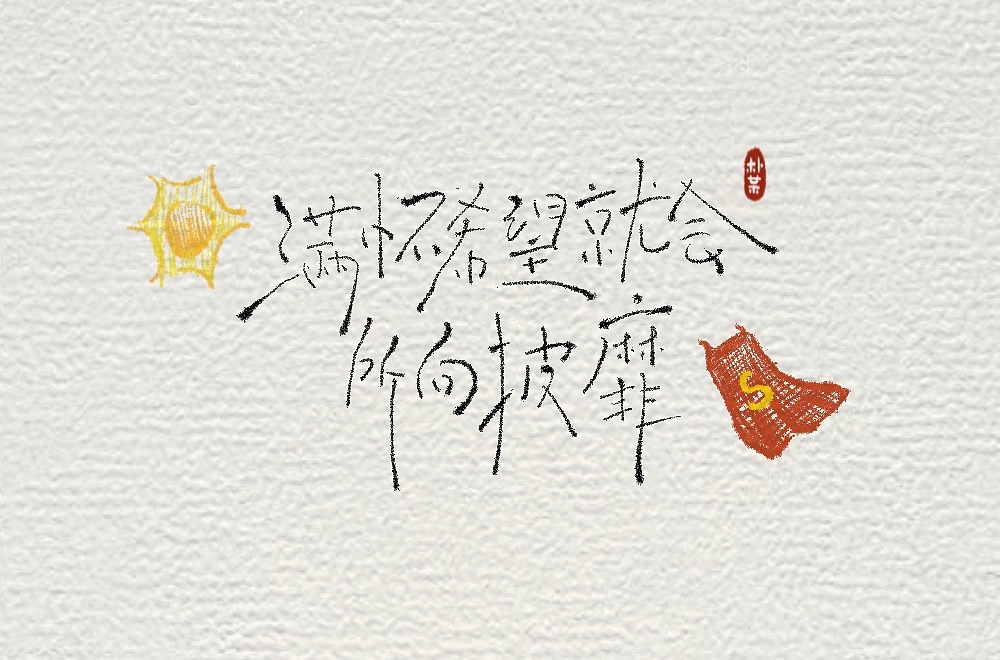 满怀希望就会
所向披靡
朴某
S